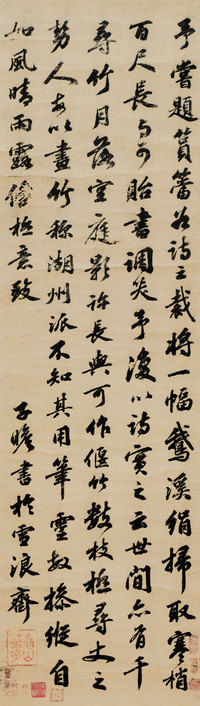 予嘗題篔簹谷詩云裁將一幅鵞溪絹掃取寒梢
百尺長與可貽書調笑予復以詩實之云世間亦有千
尋竹月落空庭影許長與可作偃竹數枝極尋丈之
勢人每以畫竹稱湖州派不知其用筆靈敏操縱自
如風晴雨露俱極意致
子瞻書於雪浪齋